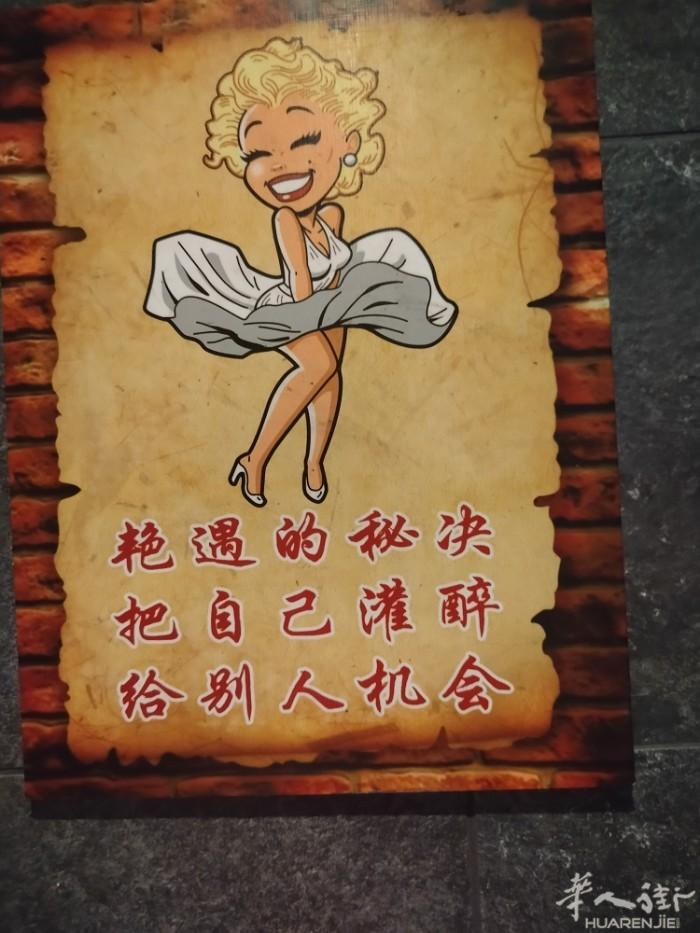 艳遇的秘决
把自己灌醉
给别人机会
華人街
HUARENJIE